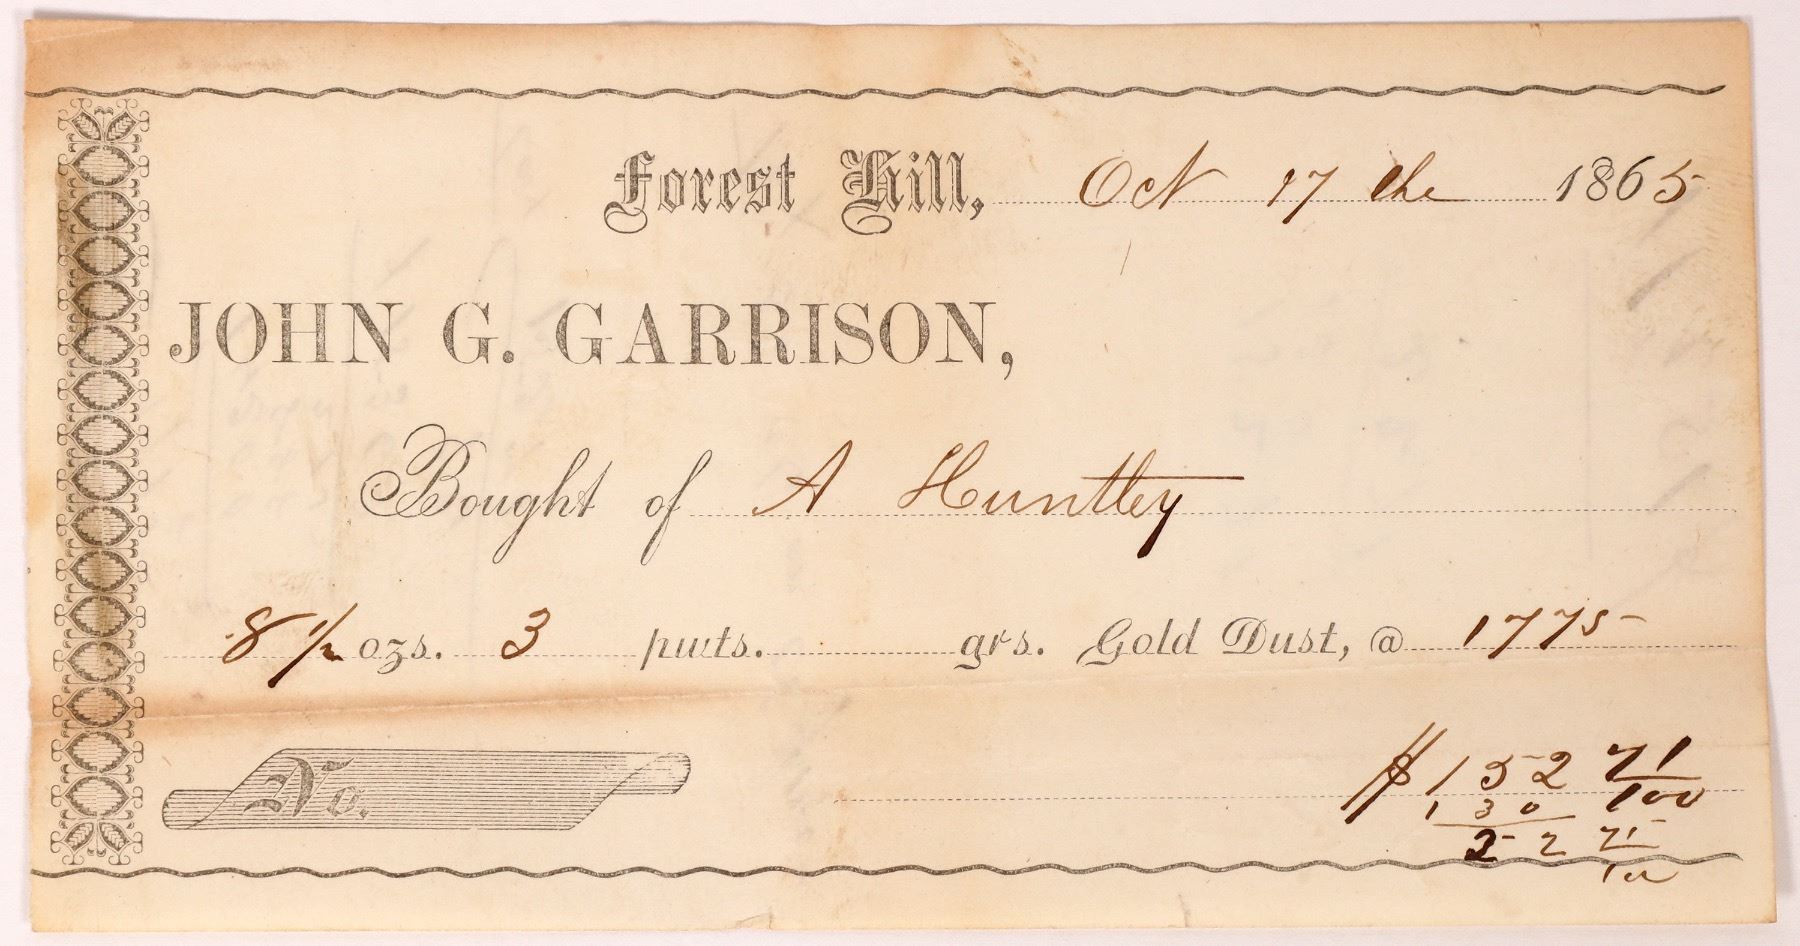 Forest Hill, Oct 17 the 1865
JOHN G. GARRISON,
Bought of A Huntley
8 1/2 ozs. 3 pwts. grs. Gold Dust, @ 1775
No.
$152 71/100
130